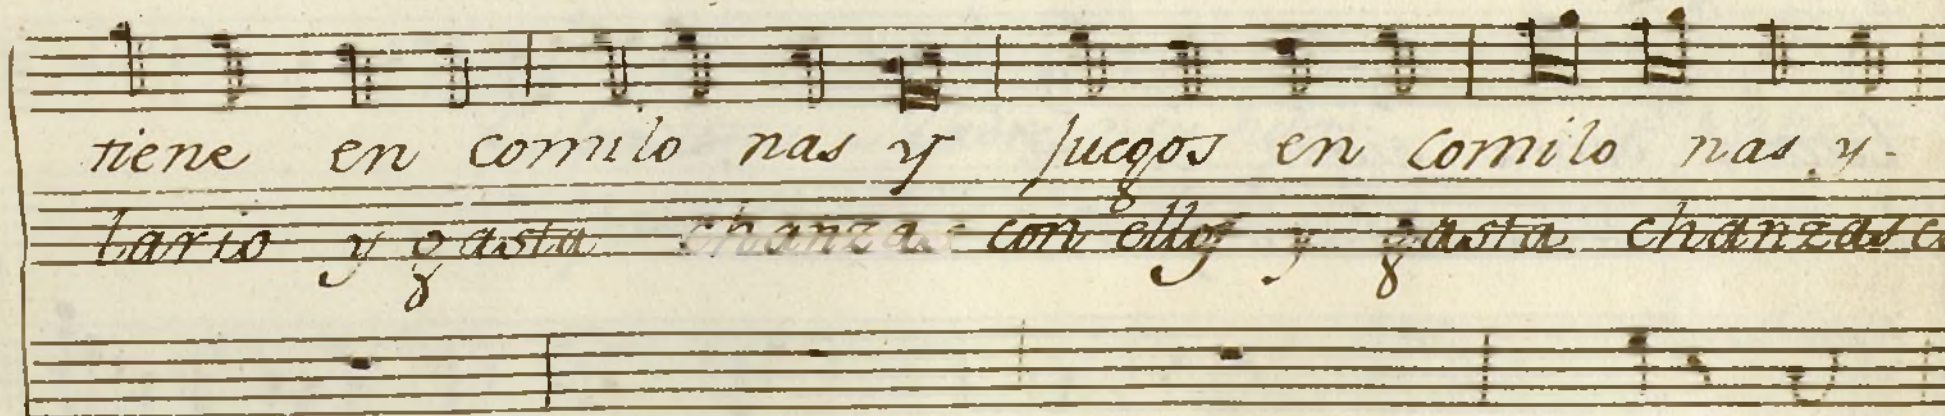 tiene en comilo nas y juegos en comilo nas y.
lario y gasta chanzas con ellos y gasta chanzas c